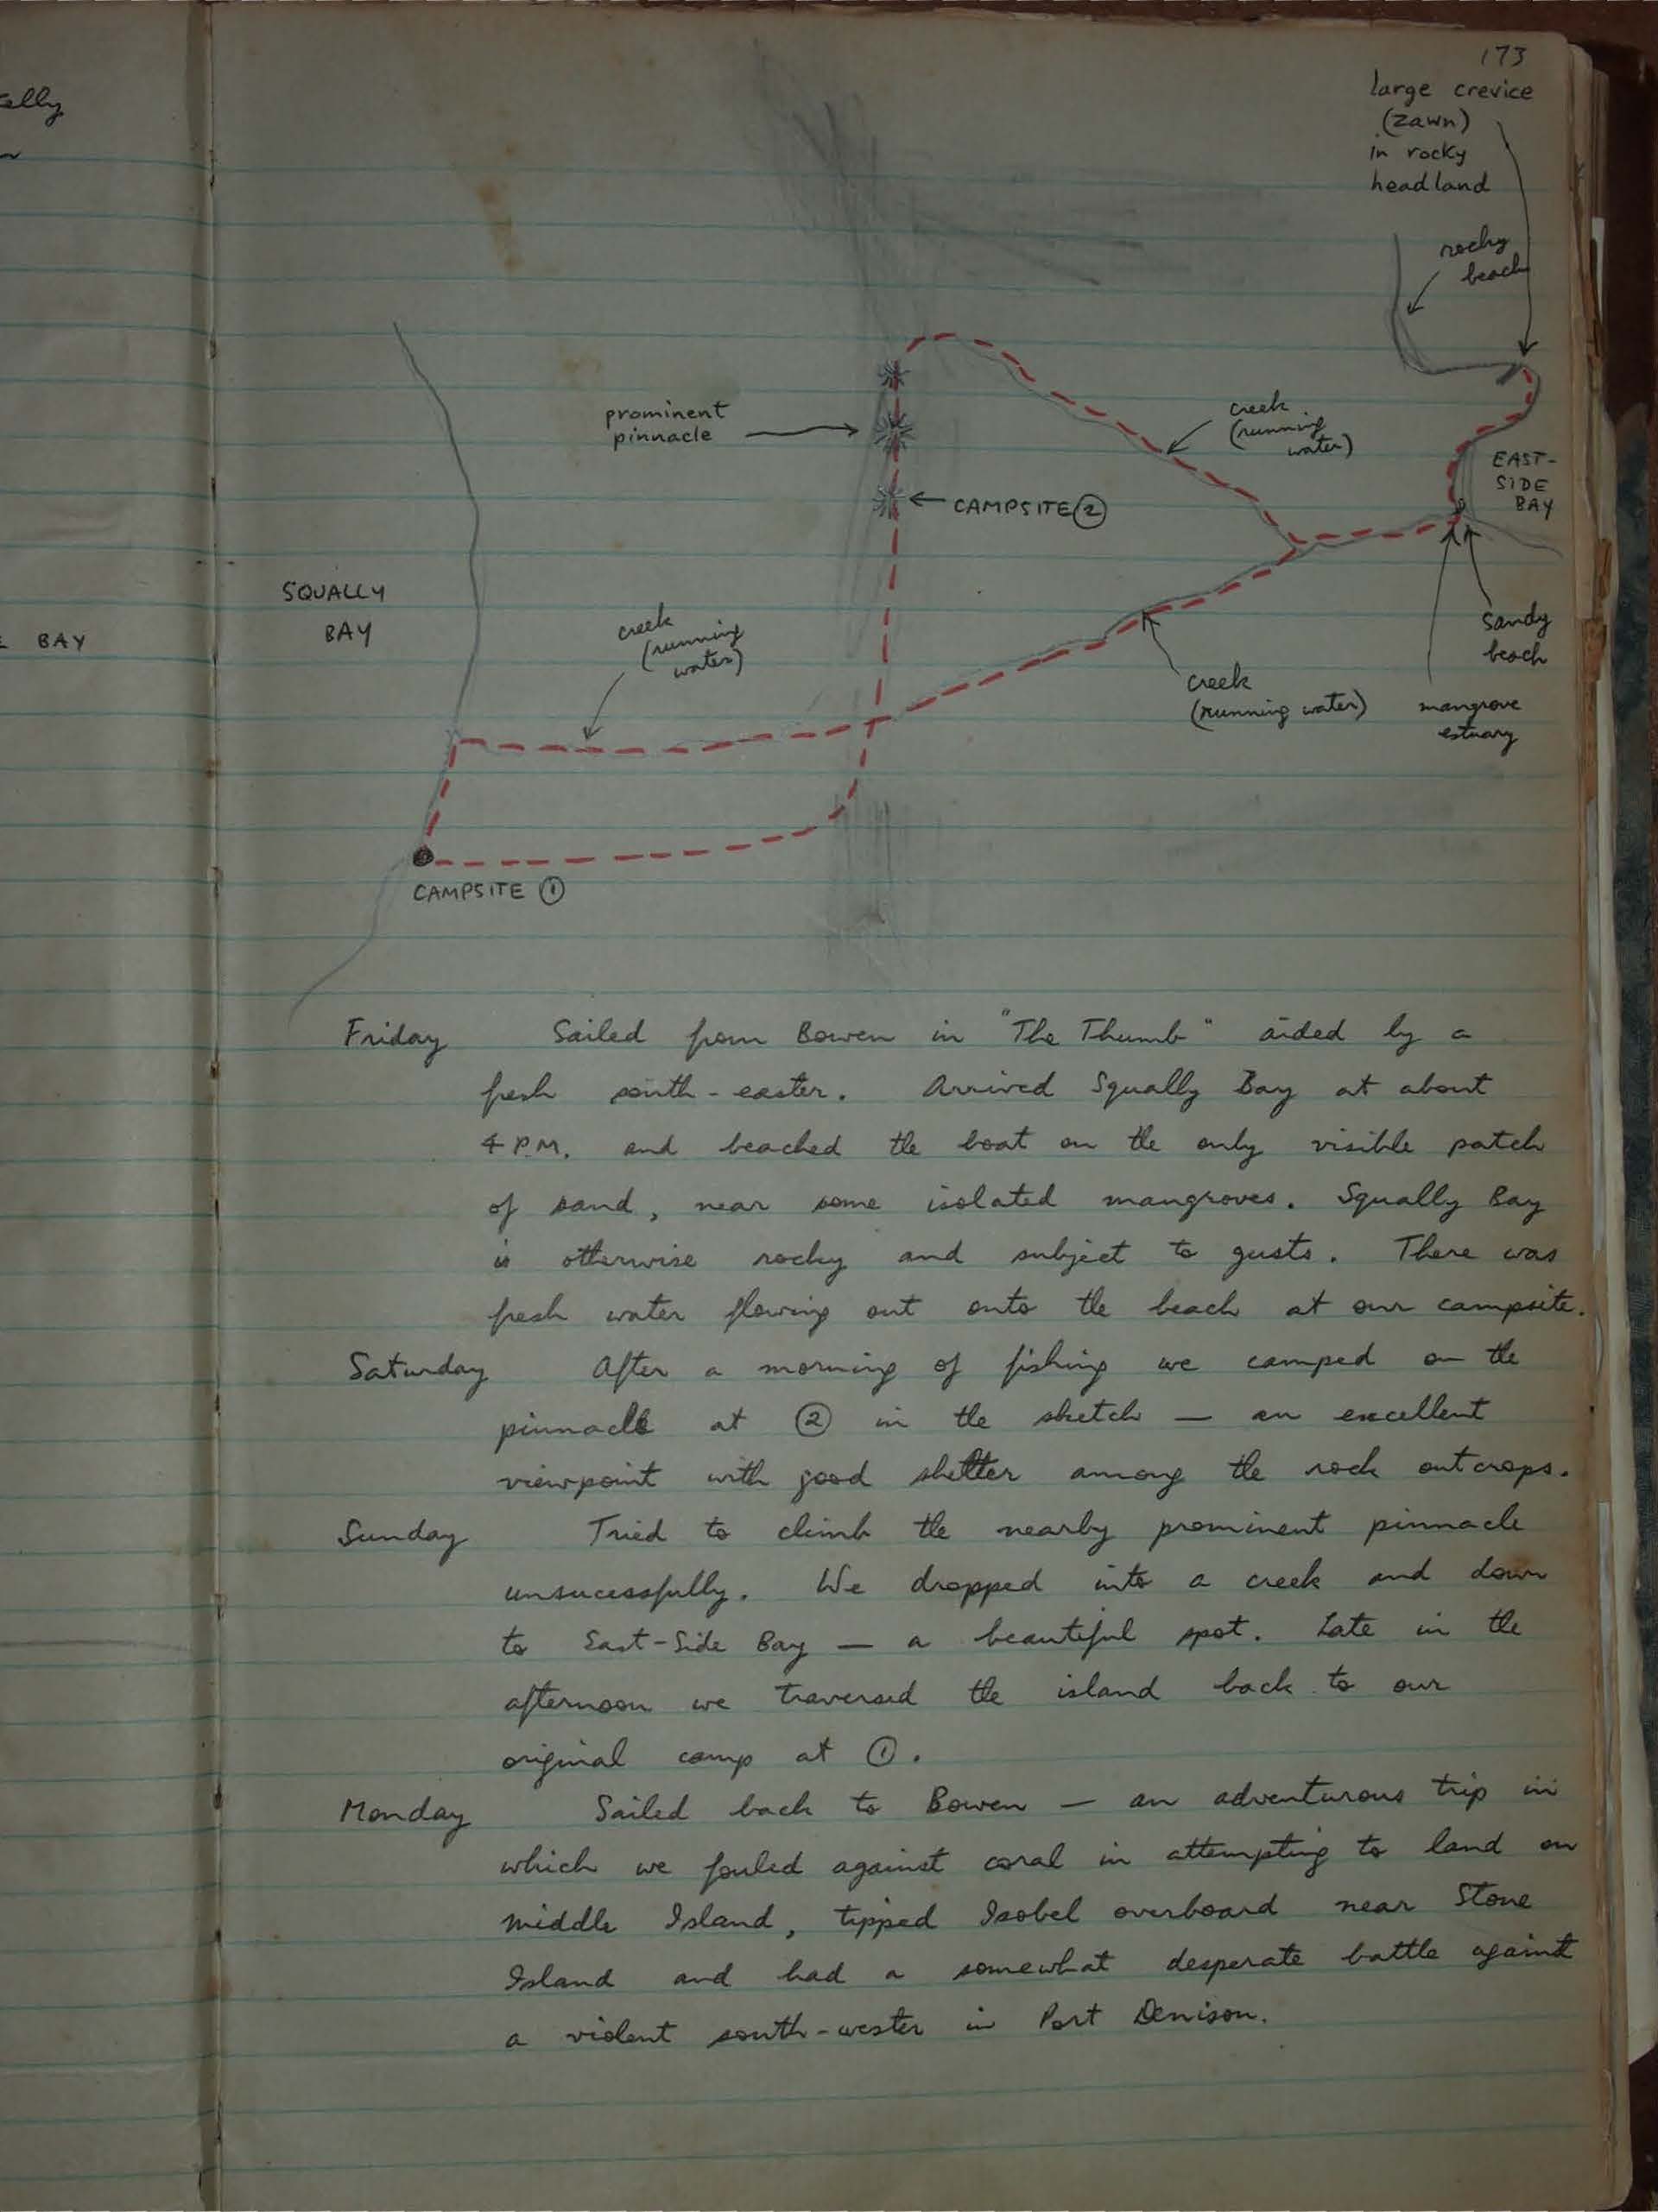 173
large crevice
(zawn)
in rocky
headland
rocky
beach
prominent
pinnacle
creek
(running
water)
EAST-
SIDE
BAY
CAMPSITE ②
SQUALLY
BAY
BAY
creek
(running
water)
sandy
beach
creek
(running water)
mangrove
estuary
CAMPSITE ①
Friday Sailed from Bowen in "The Thumb" aided by a
fresh south-easter. Arrived Squally Bay at about
4 P.M. and beached the boat on the only visible patch
of sand, near some isolated mangroves. Squally Bay
is otherwise rocky and subject to gusts. There was
fresh water flowing out onto the beach at our campsite.
Saturday After a morning of fishing we camped on the
pinnacle at ② in the sketch — an excellent
viewpoint with good shelter among the rock outcrops.
Sunday Tried to climb the nearby prominent pinnacle
unsucessfully. We dropped into a creek and down
to East-Side Bay — a beautiful spot. Late in the
afternoon we traversed the island back to our
original camp at ①.
Monday Sailed back to Bowen — an adventurous trip in
which we fouled against coral in attempting to land on
Middle Island, tipped Isobel overboard near Stone
Island and had a somewhat desperate battle against
a violent south-wester in Port Denison.